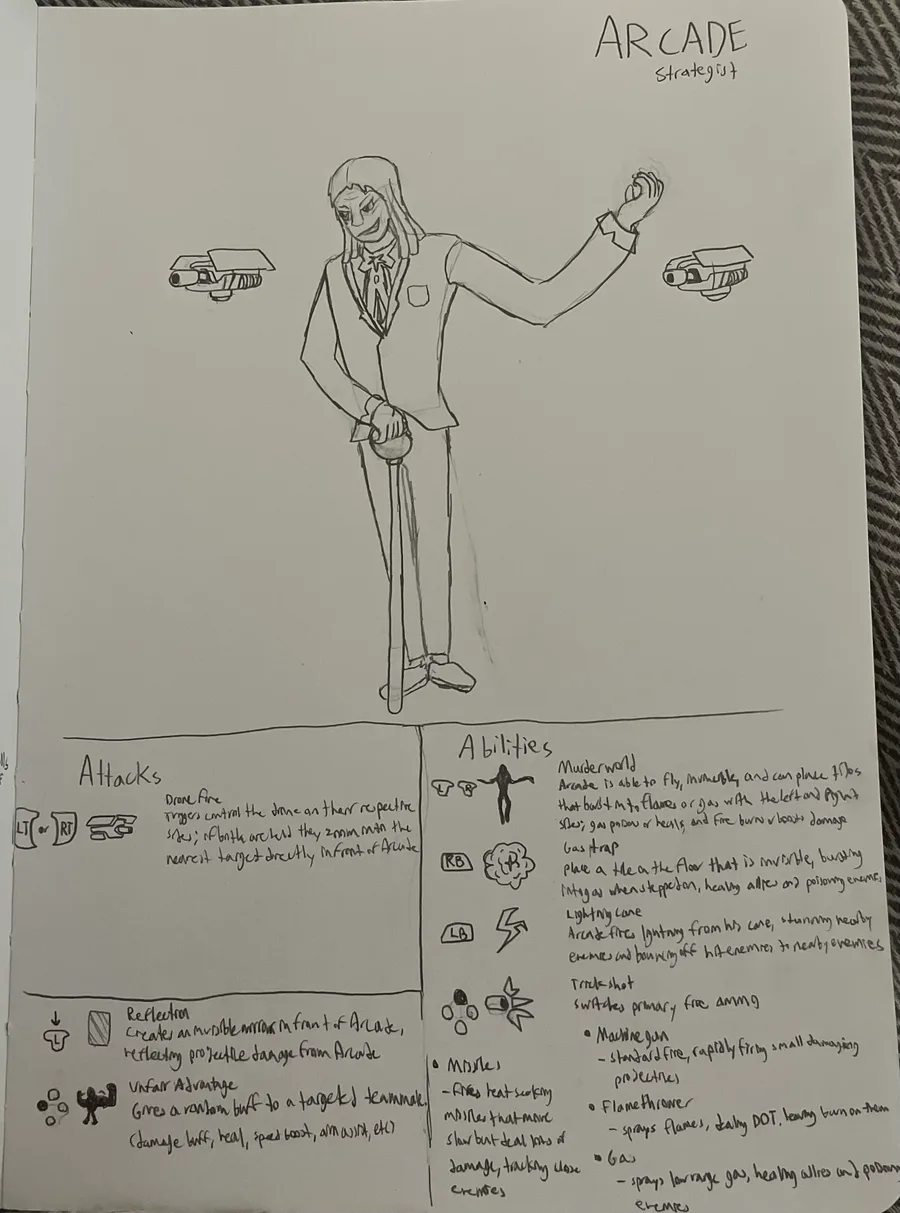 ARCADE
Strategist
Attacks
LT or RT
Drone Fire
Triggers control the drone on their respective
sides; if both are held they zoom into the
nearest target directly in front of Arcade
L
Reflection
Creates an invisible mirror in front of Arcade,
reflecting projectile damage from Arcade
Unfair Advantage
Gives a random buff to a targeted teammate
(damage buff, heal, speed boost, aim assist, etc)
Abilities
L R
Murderworld
Arcade is able to fly, invincible, and can place tiles
that burst into flames or gas with the left and right
sides; gas poison or heals, and fire burn or boosts damage
RB
Gas trap
Place a tile on the floor that is invisible, bursting
into gas when stepped on, healing allies and poisoning enemies
LB
Lightning Cane
Arcade fires lightning from his cane, stunning nearby
enemies and bouncing off hit enemies to nearby enemies
Trick shot
Switches primary fire among
• Machine gun
- standard fire, rapidly firing small damaging
projectiles
• Flamethrower
- sprays flames, dealing DOT, leaving burn on them
• Gas
- sprays low range gas, healing allies and
enemies
• Missiles
- Fires heat seeking
missiles that move
slow but deal lots of
damage, tracking close
enemies